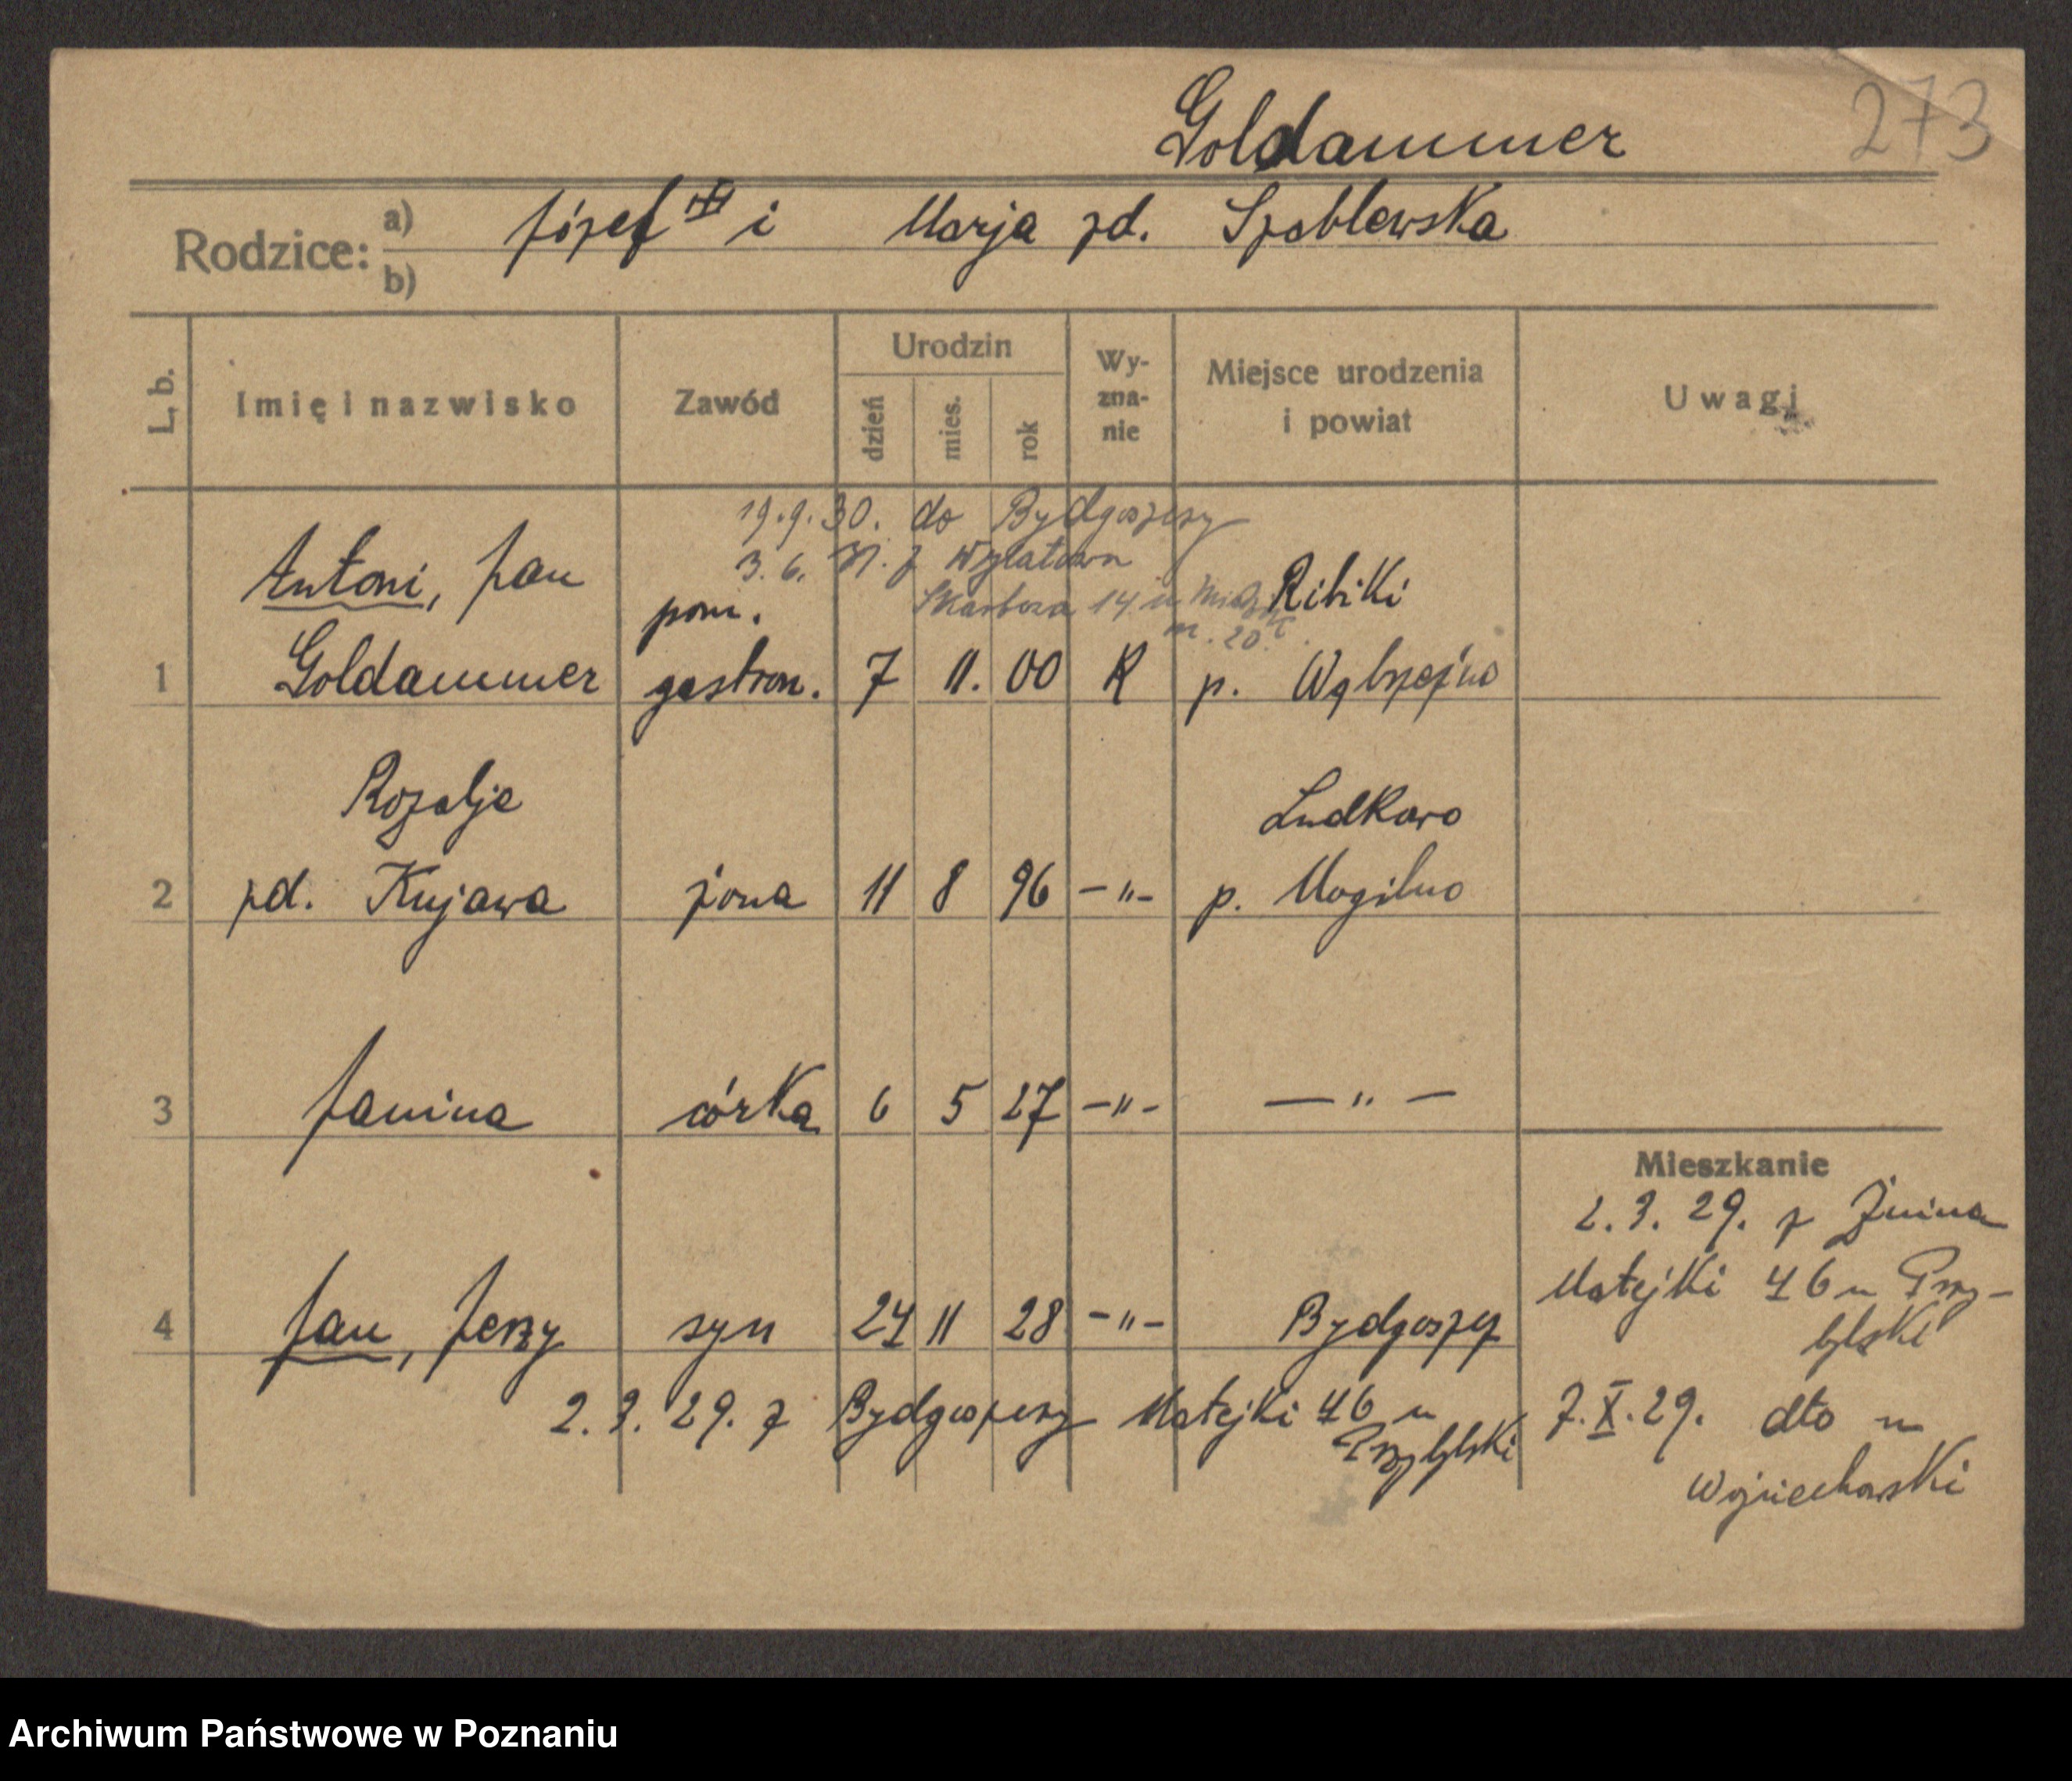 Goldammer
273
Rodzice:
a) Józef i Marja zd. Szablewska
b)
L. b.
Imię i nazwisko
Zawód
Urodzin
dzień
mies.
rok
Wy-
zna-
nie
Miejsce urodzenia
i powiat
Uwagi
19.9.30. do Bydgoszczy
3.6. 31. z
Skarbowa 14 u
m. 20
Antoni, Jan pom. Ribiki
1 Goldammer gastron. 7 11. 00 K p. Wąbrzeźno
Rozalja Ludkowo
2 zd. Kujawa żona 11 8 96 -"- p. Mogilno
3 Janina córka 6 5 27 -"- -"-
4 Jan, Jerzy syn 24 11 28 -"- Bydgoszcz
2.3.29. z Bydgoszczy Matejki 46 u
Przybylski
Mieszkanie
2.3.29. z Żnina
Matejki 46 u Przy-
bylski
7.X.29. dto u
Wojciechowski
Archiwum Państwowe w Poznaniu